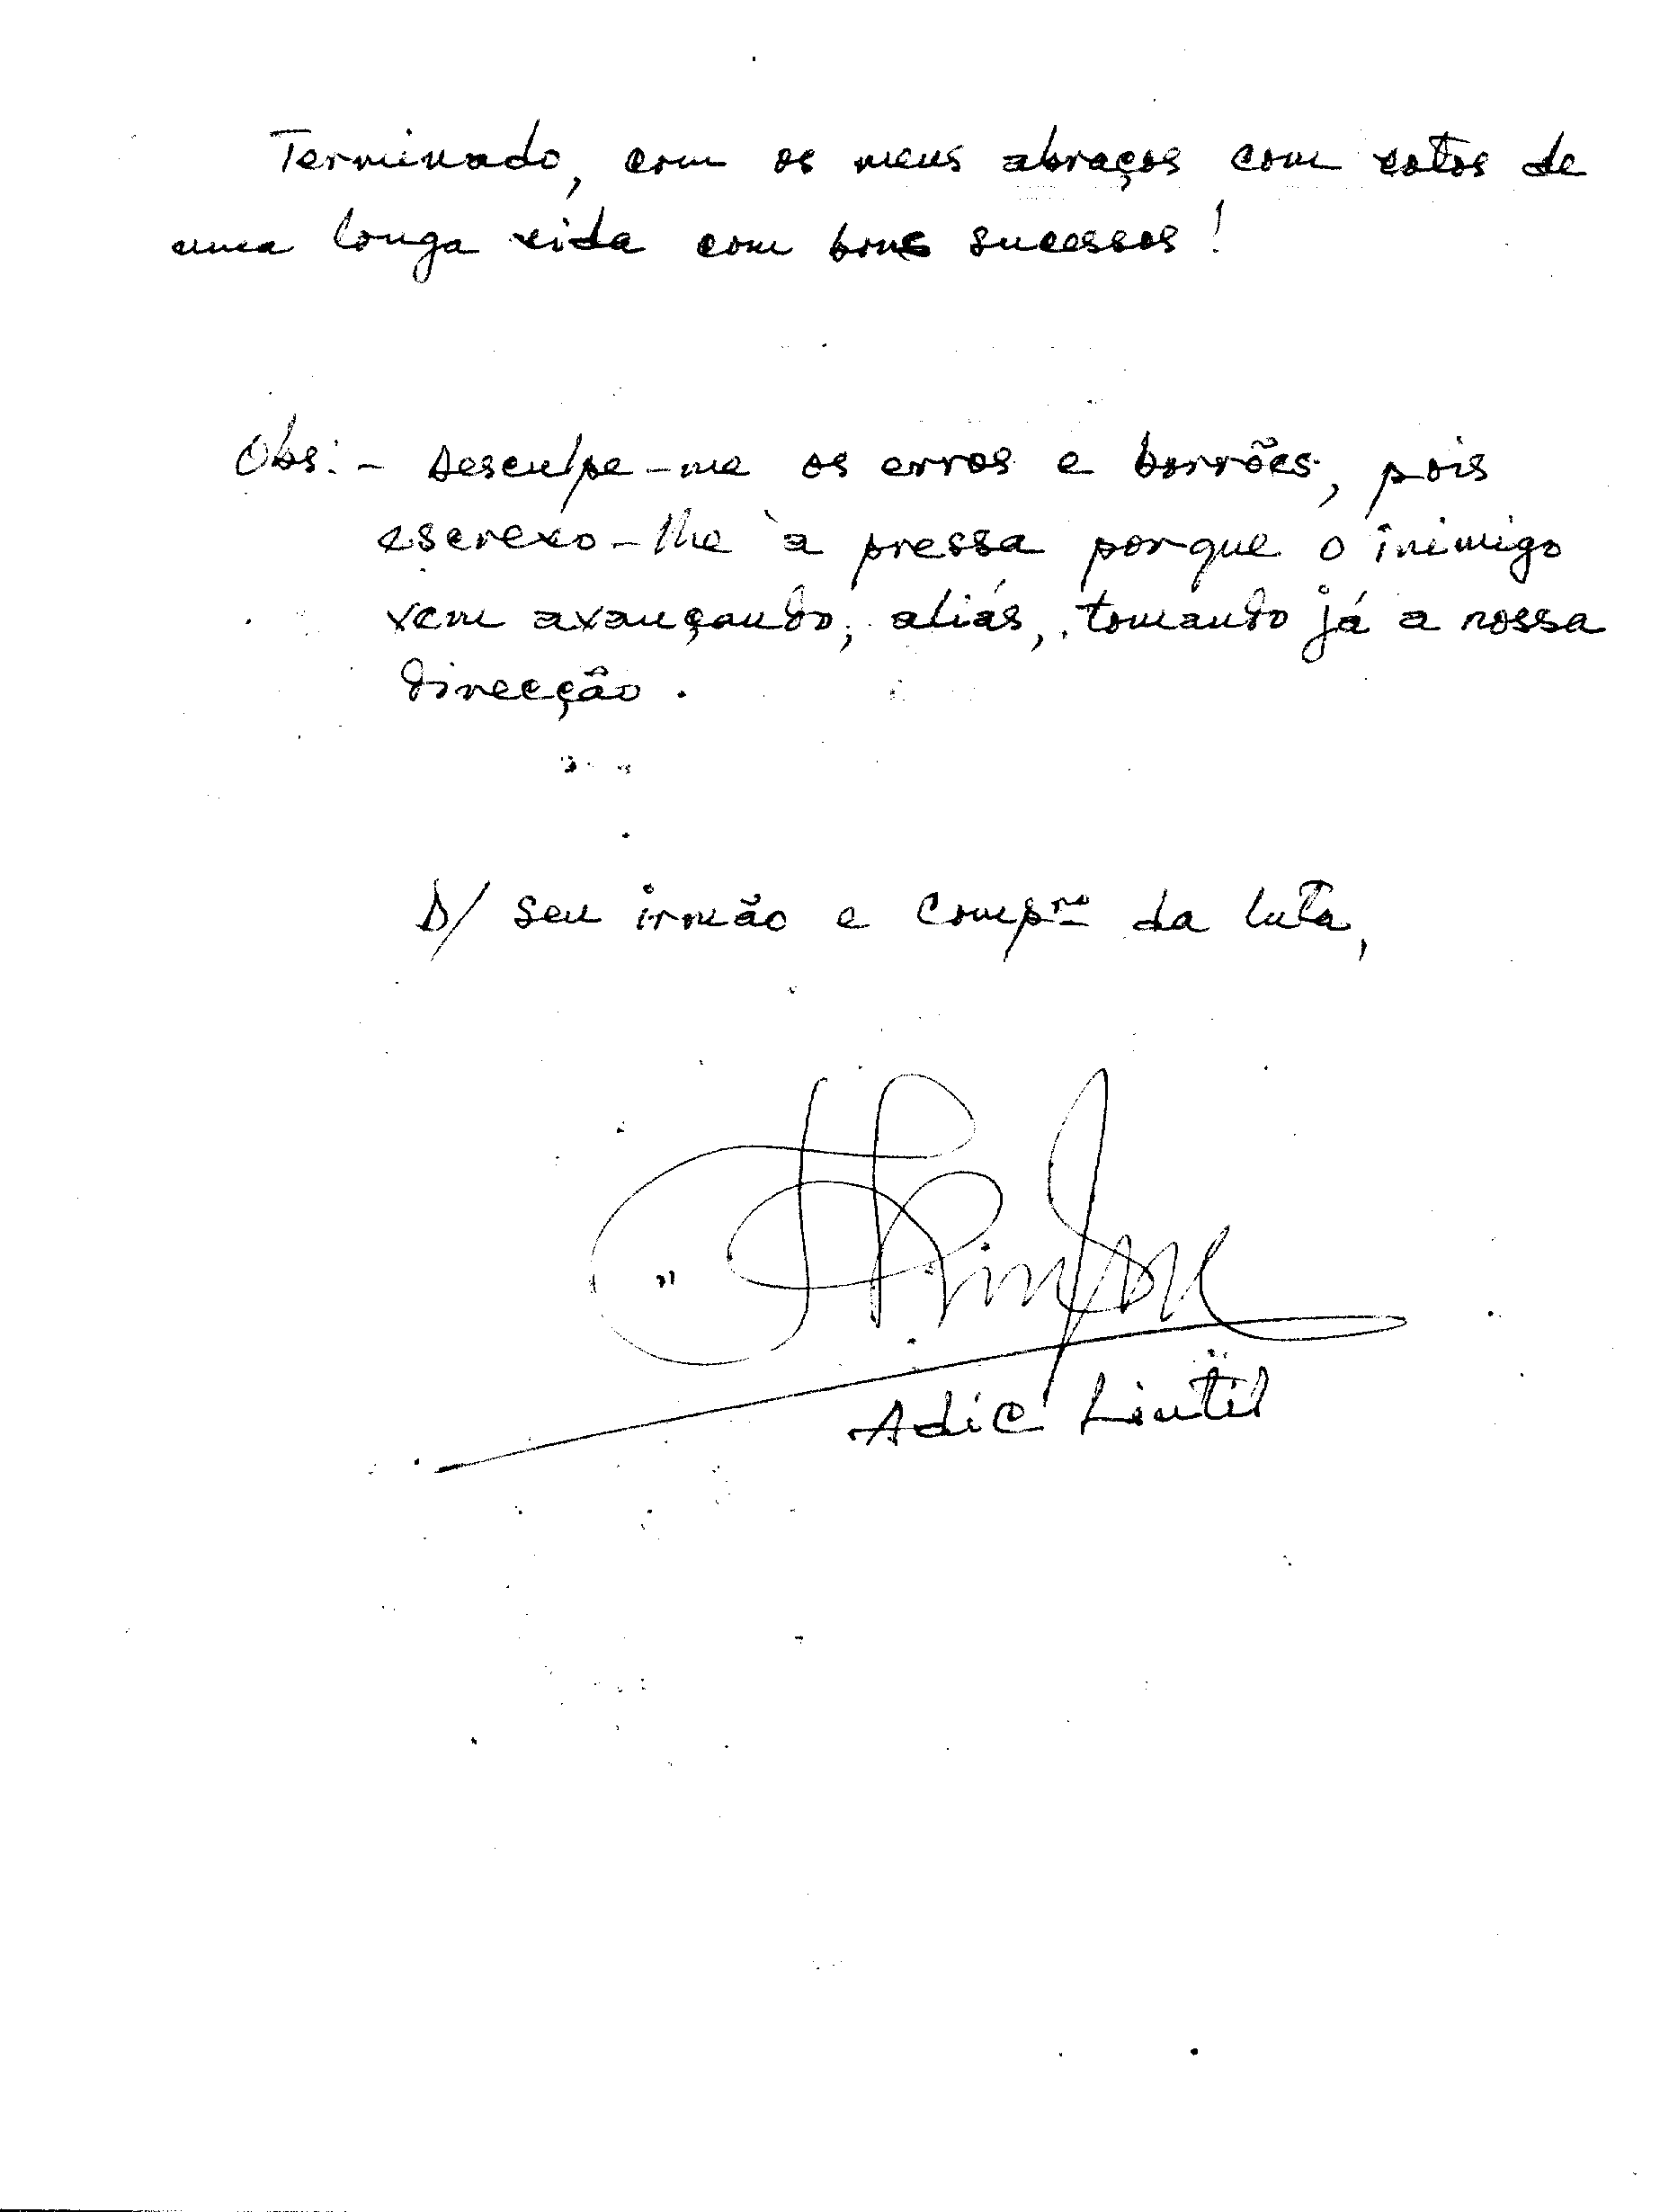 Terminado, com os meus abraços com votos de
uma longa vida com bons sucessos!
Obs: - Desculpe-me os erros e borrões, pois
escrevo-lhe à pressa porque o inimigo
vem avançando, aliás, tomando já a nossa
direcção.
D/ seu irmão e Compro da luta,
Adic Lintil